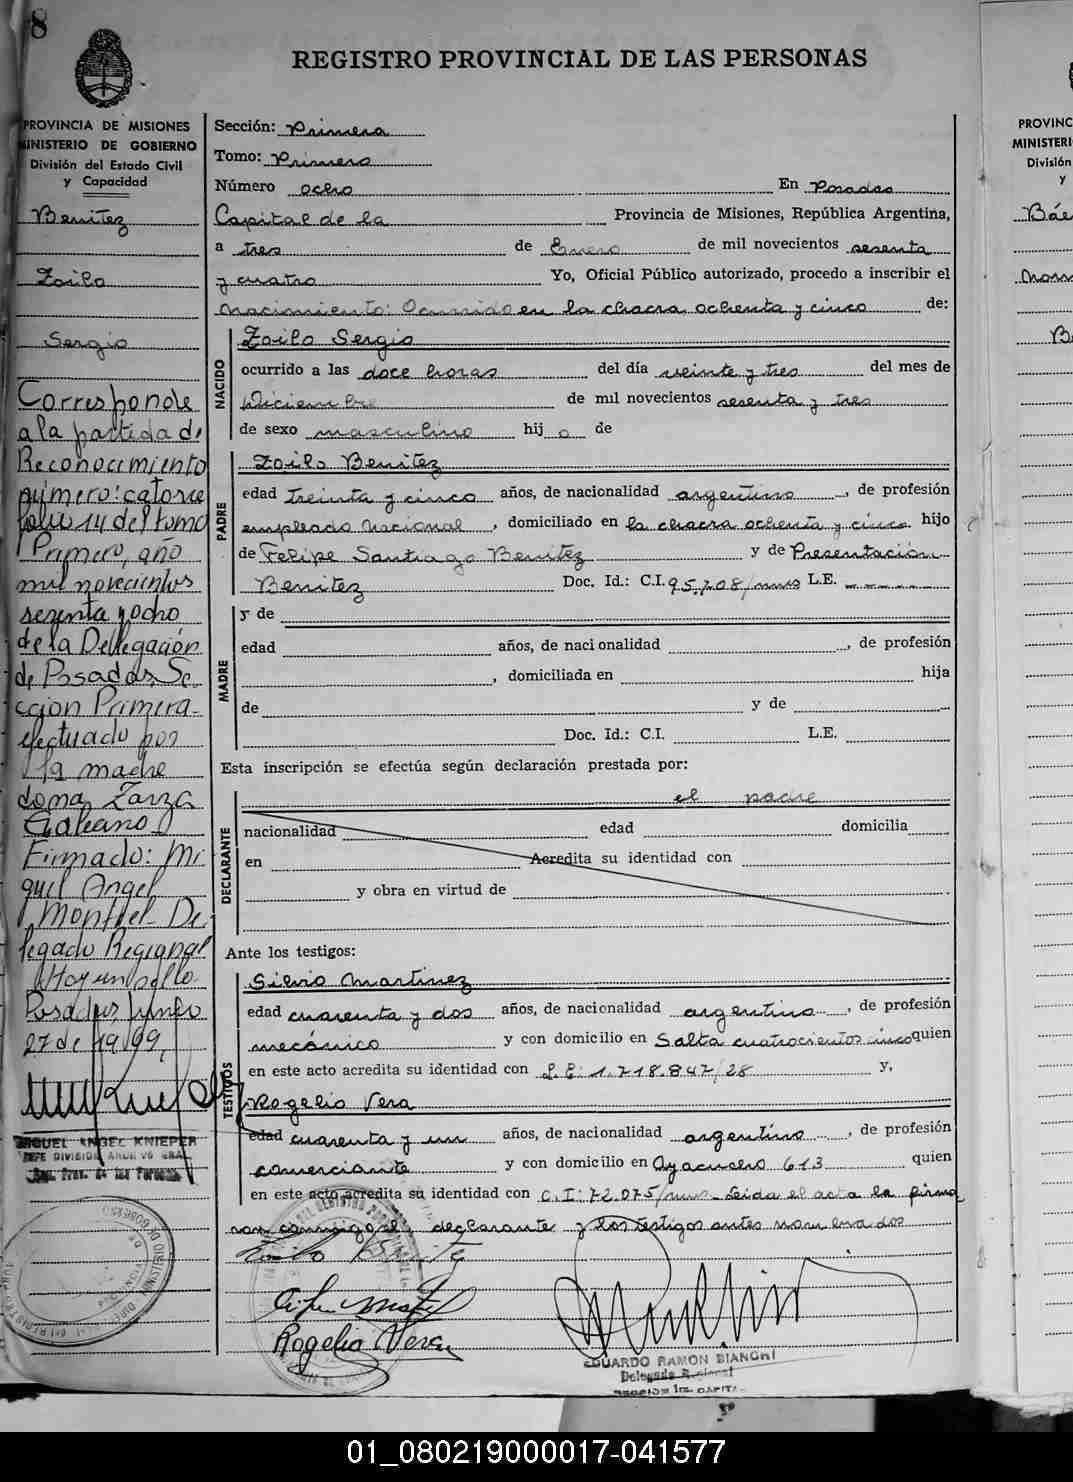 8
REGISTRO PROVINCIAL DE LAS PERSONAS
PROVINCIA DE MISIONES
MINISTERIO DE GOBIERNO
División del Estado Civil
y Capacidad
Benitez
Zoilo
Sergio
Corresponde
a la partida de
Reconocimiento
número: catorce
folio 14 del tomo
Primero, año
mil novecientos
sesenta y ocho
de la Delegación
de Posadas, Se-
cción Primera-
efectuado por
la madre
doma Zarza
Galeano
Firmado: Mi
guel Angel
Montiel De
legado Regional
Hay un sello.
Posadas, Junio
27 de 1999,
MIGUEL ANGEL KNIEPER
JEFE DIVISION ARCHIVO GRAL.
Reg. Prov. de las Personas
Sección: Primera
Tomo: Primero
Número ocho En Posadas
Capital de la Provincia de Misiones, República Argentina,
a tres de Enero de mil novecientos sesenta
y cuatro Yo, Oficial Público autorizado, procedo a inscribir el
nacimiento: Ocurrido en la chacra ochenta y cinco de:
NACIDO
Zoilo Sergio
ocurrido a las doce horas del día veinte y tres del mes de
Diciembre de mil novecientos sesenta y tres
de sexo masculino hij o de
PADRE
Zoilo Benitez
edad treinta y cinco años, de nacionalidad argentino, de profesión
empleado nacional, domiciliado en la chacra ochenta y cinco hijo
de Felipe Santiago Benitez y de Presentación
Benitez Doc. Id.: C.I. 95.208/mns L.E.
MADRE
y de
edad años, de nacionalidad, de profesión
, domiciliada en hija
de y de
Doc. Id.: C.I. L.E.
Esta inscripción se efectúa según declaración prestada por:
DECLARANTE
el padre
nacionalidad edad domicilia
en Acredita su identidad con
y obra en virtud de
Ante los testigos:
TESTIGOS
Silvio Martinez
edad cuarenta y dos años, de nacionalidad argentino, de profesión
mecánico y con domicilio en Salta cuatrocientos cinco quien
en este acto acredita su identidad con L.E: 1.718.847/28 y,
Rogelio Vera
edad cuarenta y un años, de nacionalidad argentino, de profesión
comerciante y con domicilio en Ayacucho 613 quien
en este acto acredita su identidad con C.I: 72.075/mns- Leida el acta la firma
con conmigo el declarante y los testigos antes nombrados
Zoilo Benitez
Rogelio Vera
EDUARDO RAMON BIANCHI
Delegado Regional
SECCION 1ra. CAPITAL
PROVINC
MINISTERI
División
y
Báe
01_080219000017-041577